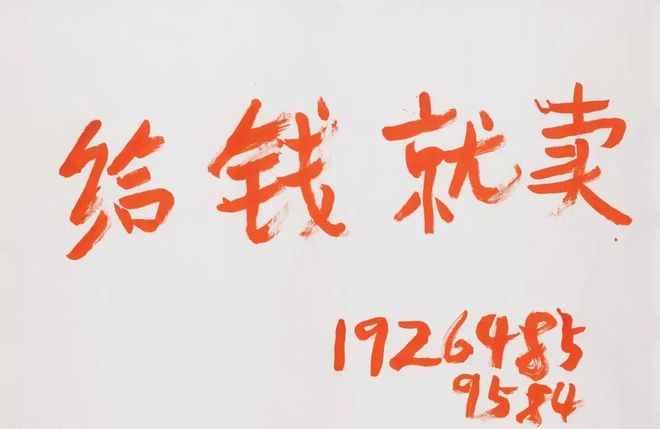 给钱就卖
1926485
9584